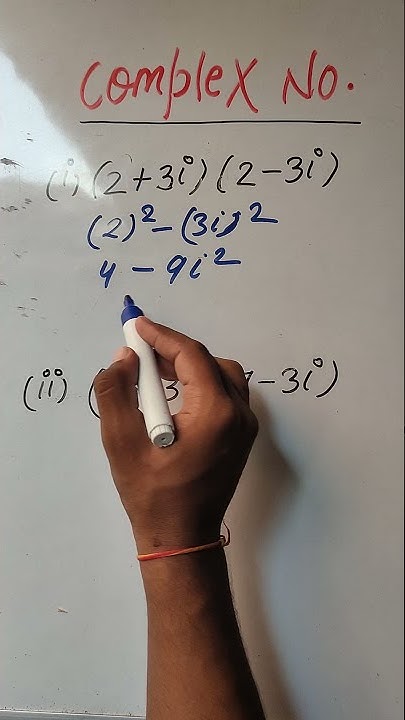 Complex No.
(i) (2+3i) (2-3i)
(2)² - (3i)²
4 - 9i²
(ii) ( 3 -3i)